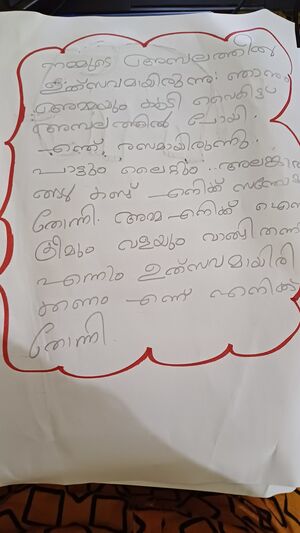 നമ്മുടെ അമ്പലത്തിൽ
ഉത്സവമായിരുന്നു. ഞാനും
അമ്മയും കൂടി വൈകിട്ട്
അമ്പലത്തിൽ പോയി.
എന്ത് രസമായിരുന്നു.
പാട്ടും ലൈറ്റും അലങ്കാര
ങ്ങളു കണ്ട് എനിക്ക് സന്തോഷം
തോന്നി. അമ്മ എനിക്ക് ഐസ്
ക്രീമും വളയും വാങ്ങി തന്നു
എന്നും ഉത്സവമായിരി
ക്കണം എന്ന് എനിക്ക്
തോന്നി.